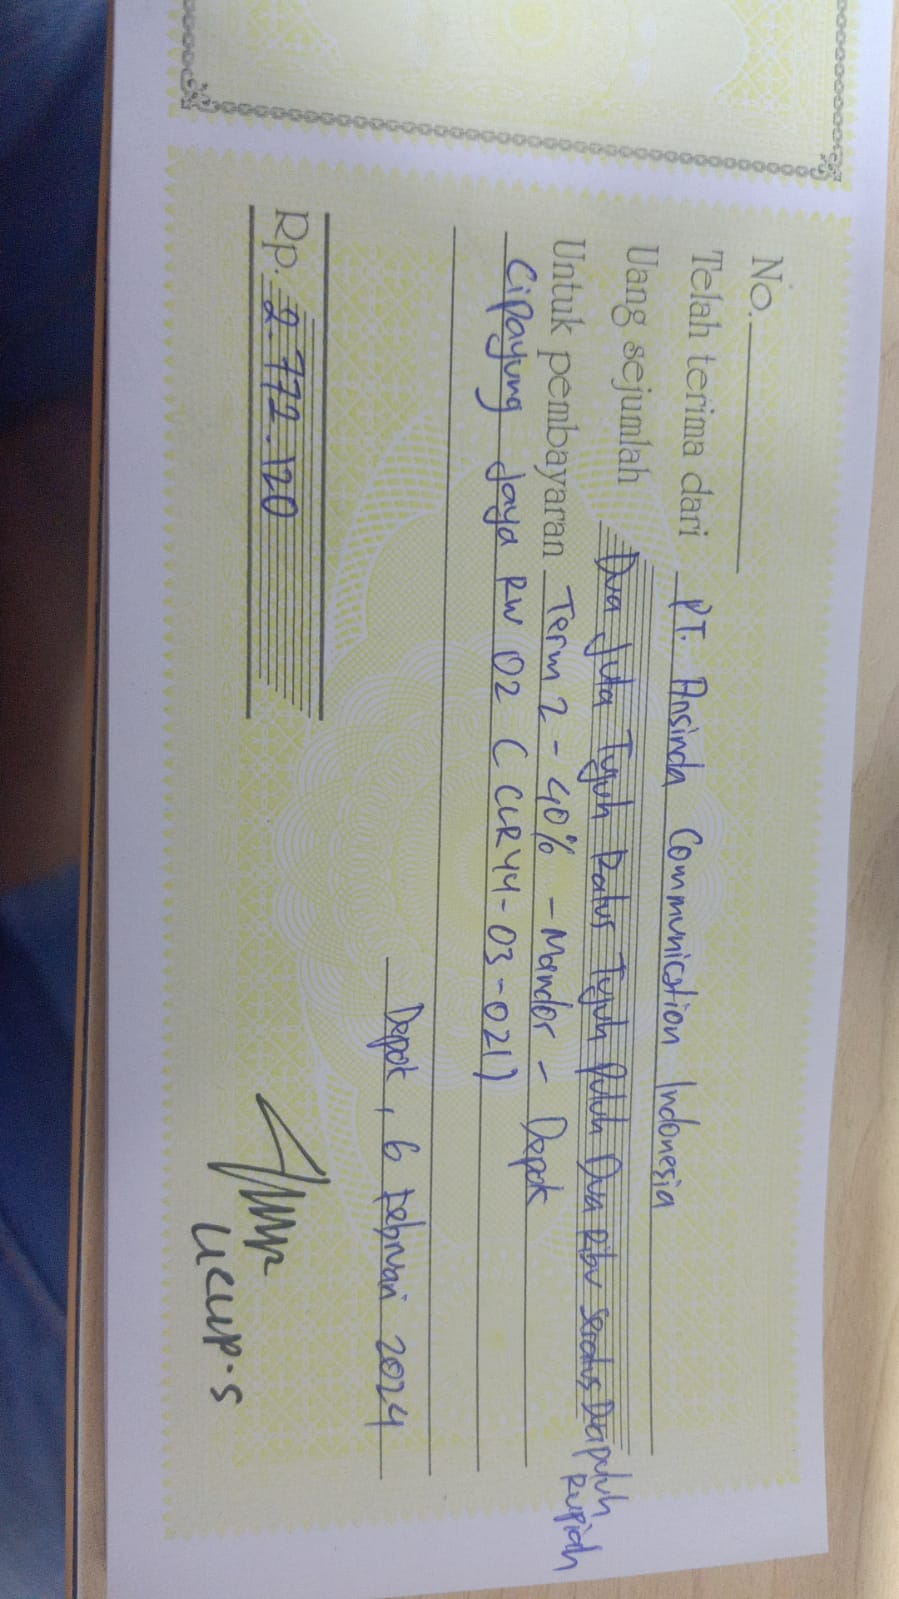 No.
Telah terima dari PT. Ansinda Communication Indonesia
Uang sejumlah Dua Juta Tujuh Ratus Tujuh Puluh Dua Ribu Seratus Dua puluh Rupiah
Untuk pembayaran Term 2 - 40% - Mandor - Depok
Cipayung Jaya RW 02 ( CLR44-03-021)
Depok, 6 Februari 2024
Rp. 2.772.120
Ucup.S